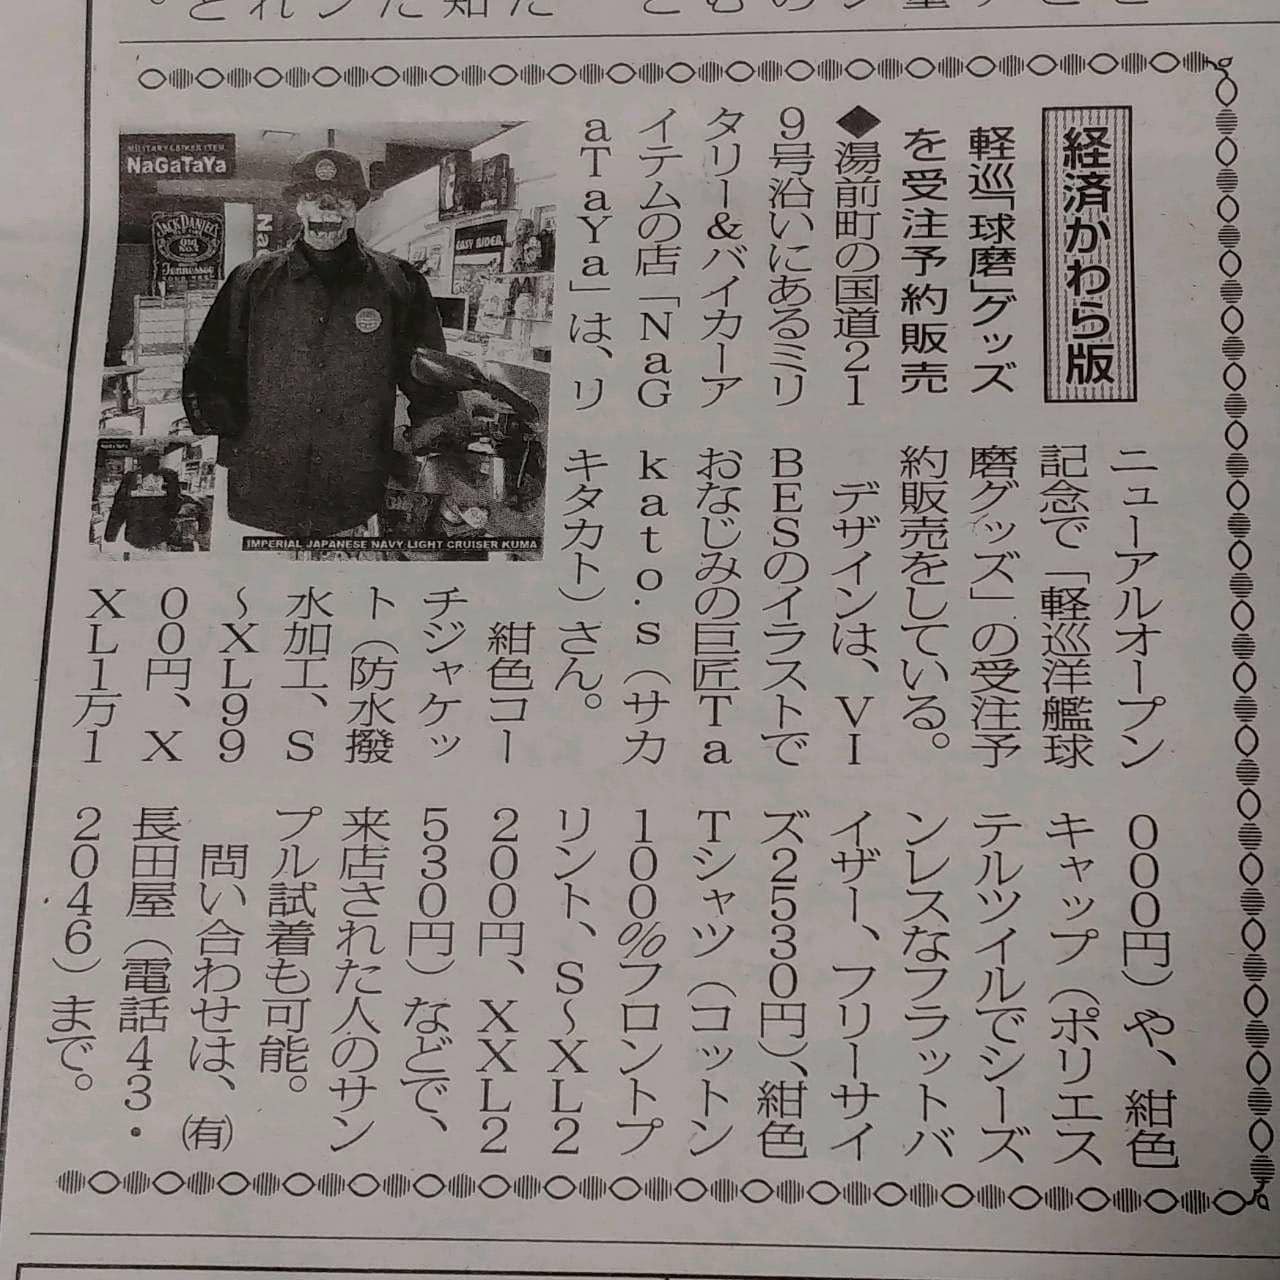 経済かわら版
軽巡「球磨」グッズ
を受注予約販売
◆湯前町の国道21
9号沿いにあるミリ
タリー&バイカーア
イテムの店「NaG
aTaYa」は、リ
ニューアルオープン
記念で「軽巡洋艦球
磨グッズ」の受注予
約販売をしている。
デザインは、VI
BESのイラストで
おなじみの巨匠Ta
kato.s(サカ
キタカト)さん。
紺色コー
チジャケッ
ト(防水撥
水加工、S
〜XL99
00円、X
XL1万1
000円)や、紺色
キャップ(ポリエス
テルツイルでシーズ
ンレスなフラットバ
イザー、フリーサイ
ズ2530円)、紺色
Tシャツ(コットン
100%フロントプ
リント、S〜XL2
200円、XXL2
530円)などで、
来店された人のサン
プル試着も可能。
問い合わせは、㈲
長田屋(電話43・
2046)まで。
MILITARY&BIKER ITEM
NaGaTaYa
JACK DANIEL'S
Tennessee
EASY RIDER
IMPERIAL JAPANESE NAVY LIGHT CRUISER KUMA